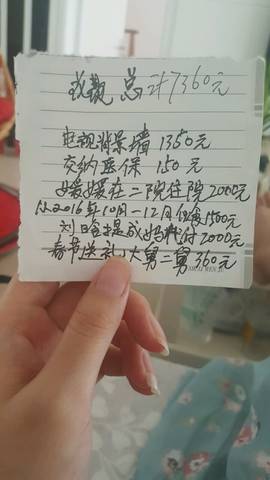 总计7360元
电视背景墙 1350元
交纳医保 150元
媛媛在二院住院2000元
从2016年10月—12月伙食1500元
刘 提成 付2000元
春节送礼 大舅二舅360元